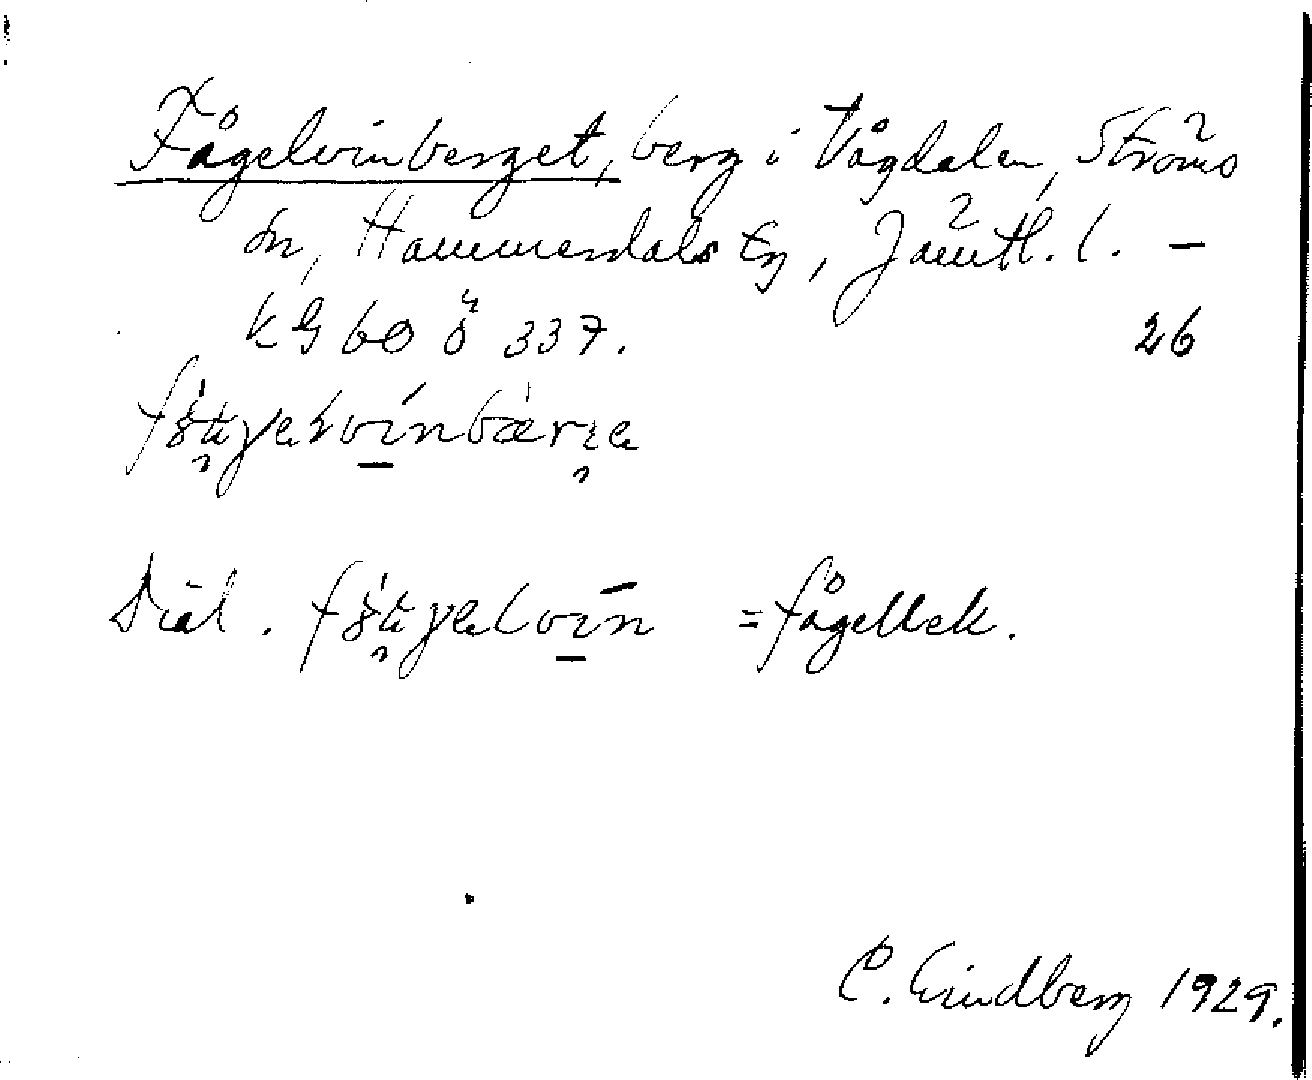 Fågelvinberget, berg i Vågdalen, Ströms
sn, Hammerdals tg, Jämtl. l. –
KG 60 Ö 337. 26
Dial. = fågellek.
C. Lindberg 1929.